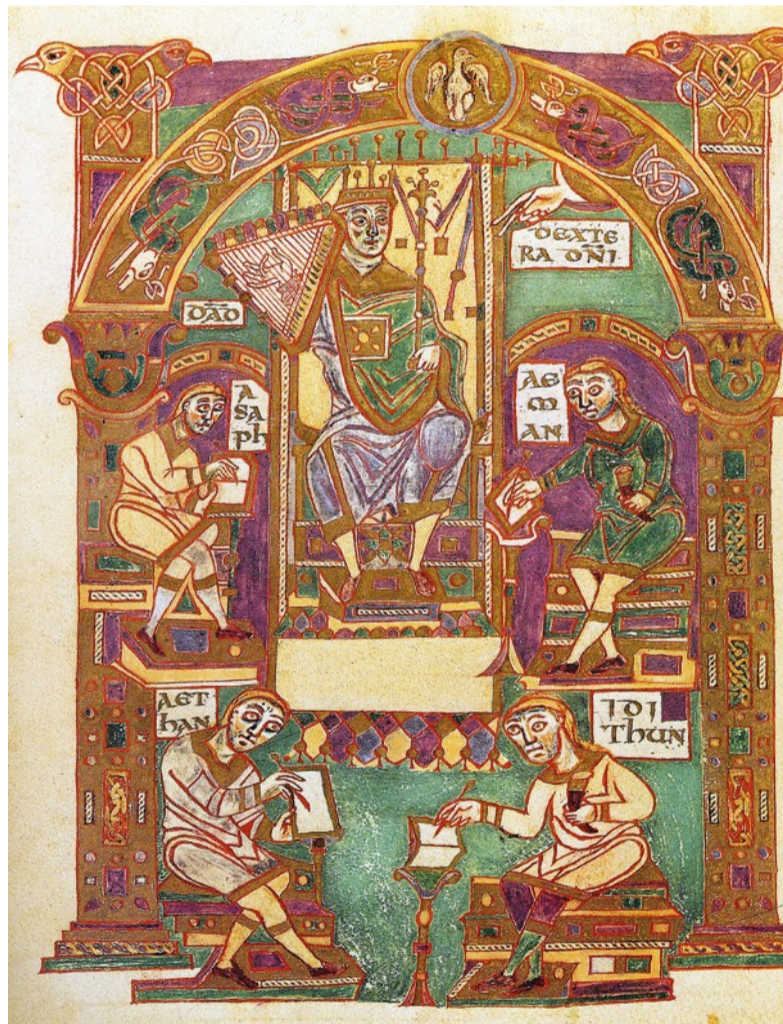 DEXTE
RA DN̄I
DĀD
A
SA
Ph
AE
M
AN
AET
hAN
IDI
ThUN